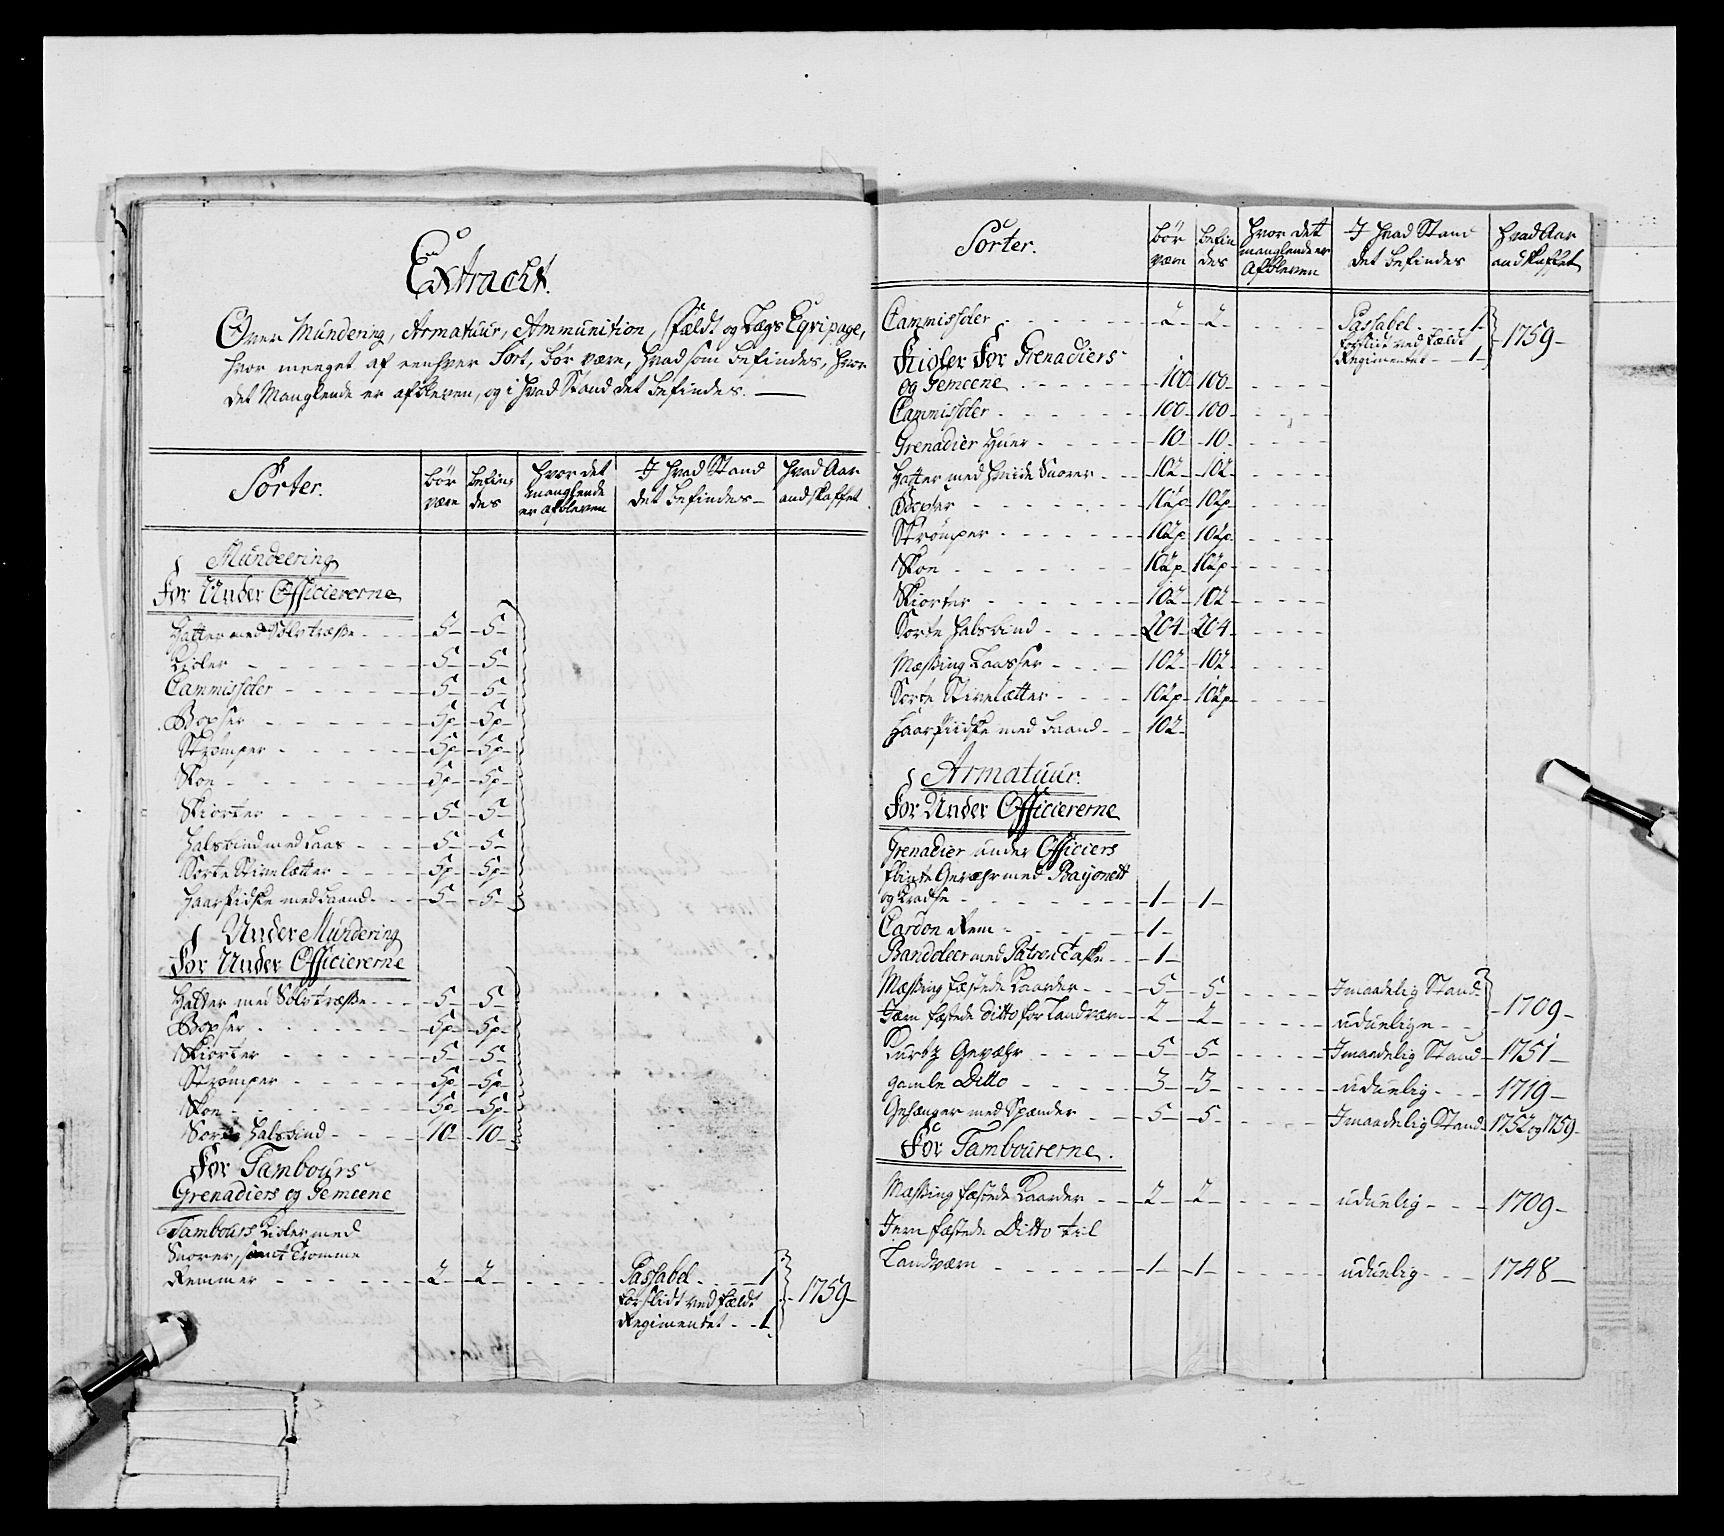 Extract.
Over Mundering, Armatuur, Ammunition, Fældt og Tægs Eqvipage,
hvor meeget af eenhver Sort, bør være, hvad som befindes, hvor
det Manglende er afbleven, og i hvad Stand det befindes. —
Sorter. bør være befindes hvor det manglende er afbleven I hvad Stand det befindes hvad Aar andskaffet
Mundeering
For Under Officiererne
Hatter med Sølv træsse - - 5 - 5
Kioler - - - 5 - 5
Cammissoler - - - 5 - 5
Boxser - - - 5p - 5p
Strømper - - - 5p - 5p
Skoe - - - 5p - 5p
Skiorter - - - 5 - 5
Halsbind med Laas - - 5 - 5
Sorte Stivelætter - - 5p - 5p
Haar Pidske med Baand - - 5 - 5
Under Mundering
For Under Officiererne
Hatter med Sølv træsse - - 5 - 5
Boxser - - - 5p - 5p
Skiorter - - - 5 - 5
Strømper - - - 5p - 5p
Skoe - - - 5p - 5p
Sorte Halsbind - - - 10 - 10
For Tambours
Grenadiers og Gemeene
Tambours Kioler med
Snorer, samt Tromme
Remmer - - - 2 - 2 - - - Passabel - - 1
forslidt ved Fældt - 1759
Regimentet - - 1
Sorter. bør være befindes hvor det manglende er Afbleven I hvad Stand det befindes hvad Aar andskaffet
Cammissoler - - - 2 - 2 - - - Passabel - 1
forslidt ved Fældt - 1759
Regimentet - 1
Kioler For Grenadiers
og Gemeene - - - 100 - 100
Cammissoler - - - 100 - 100
Grenadier Huer - - - 10 - 10
Hatter med hvide Snorer - - 102 - 102
Boxser - - - 102p - 102p
Strømper - - - 102p - 102p
Skoe - - - 102p - 102p
Skiorter - - - 102 - 102
Sorte Halsbind - - - 204 - 204
Messing Laasser - - - 102 - 102
Sorte Stivelætter - - - 102p - 102p
Haar Piidske med Baand - - 102
Armatuur.
For Under Officiererne
Grenadier under Officiers
Flinte Gevæhr med Baijonett
og Kradse - - - 1 - 1
Cardon Rem - - - 1
Bandoleer med Patron Taske - - 1
Messing fæstede Kaarder - - 5 - 5 - - - I maadelig Stand
Jærn fæstede ditto for Landværn - 2 - 2 - - - uduelige - - 1709
Kurtz Gevæhr - - - 5 - 5 - - - I maadelig Stand - 1751
gamle Ditto - - - 3 - 3 - - - uduelig - - 1719
Gehænger med Spænder - - 5 - 5 - - - I maadelig Stand - 1752 og 1759
For Tambourerne.
Messing fæstede Kaarder - - 2 - 2 - - - uduelig - - 1709
Jern fæstede Ditto til
Landværn - - - 1 - 1 - - - uduelig - - 1748